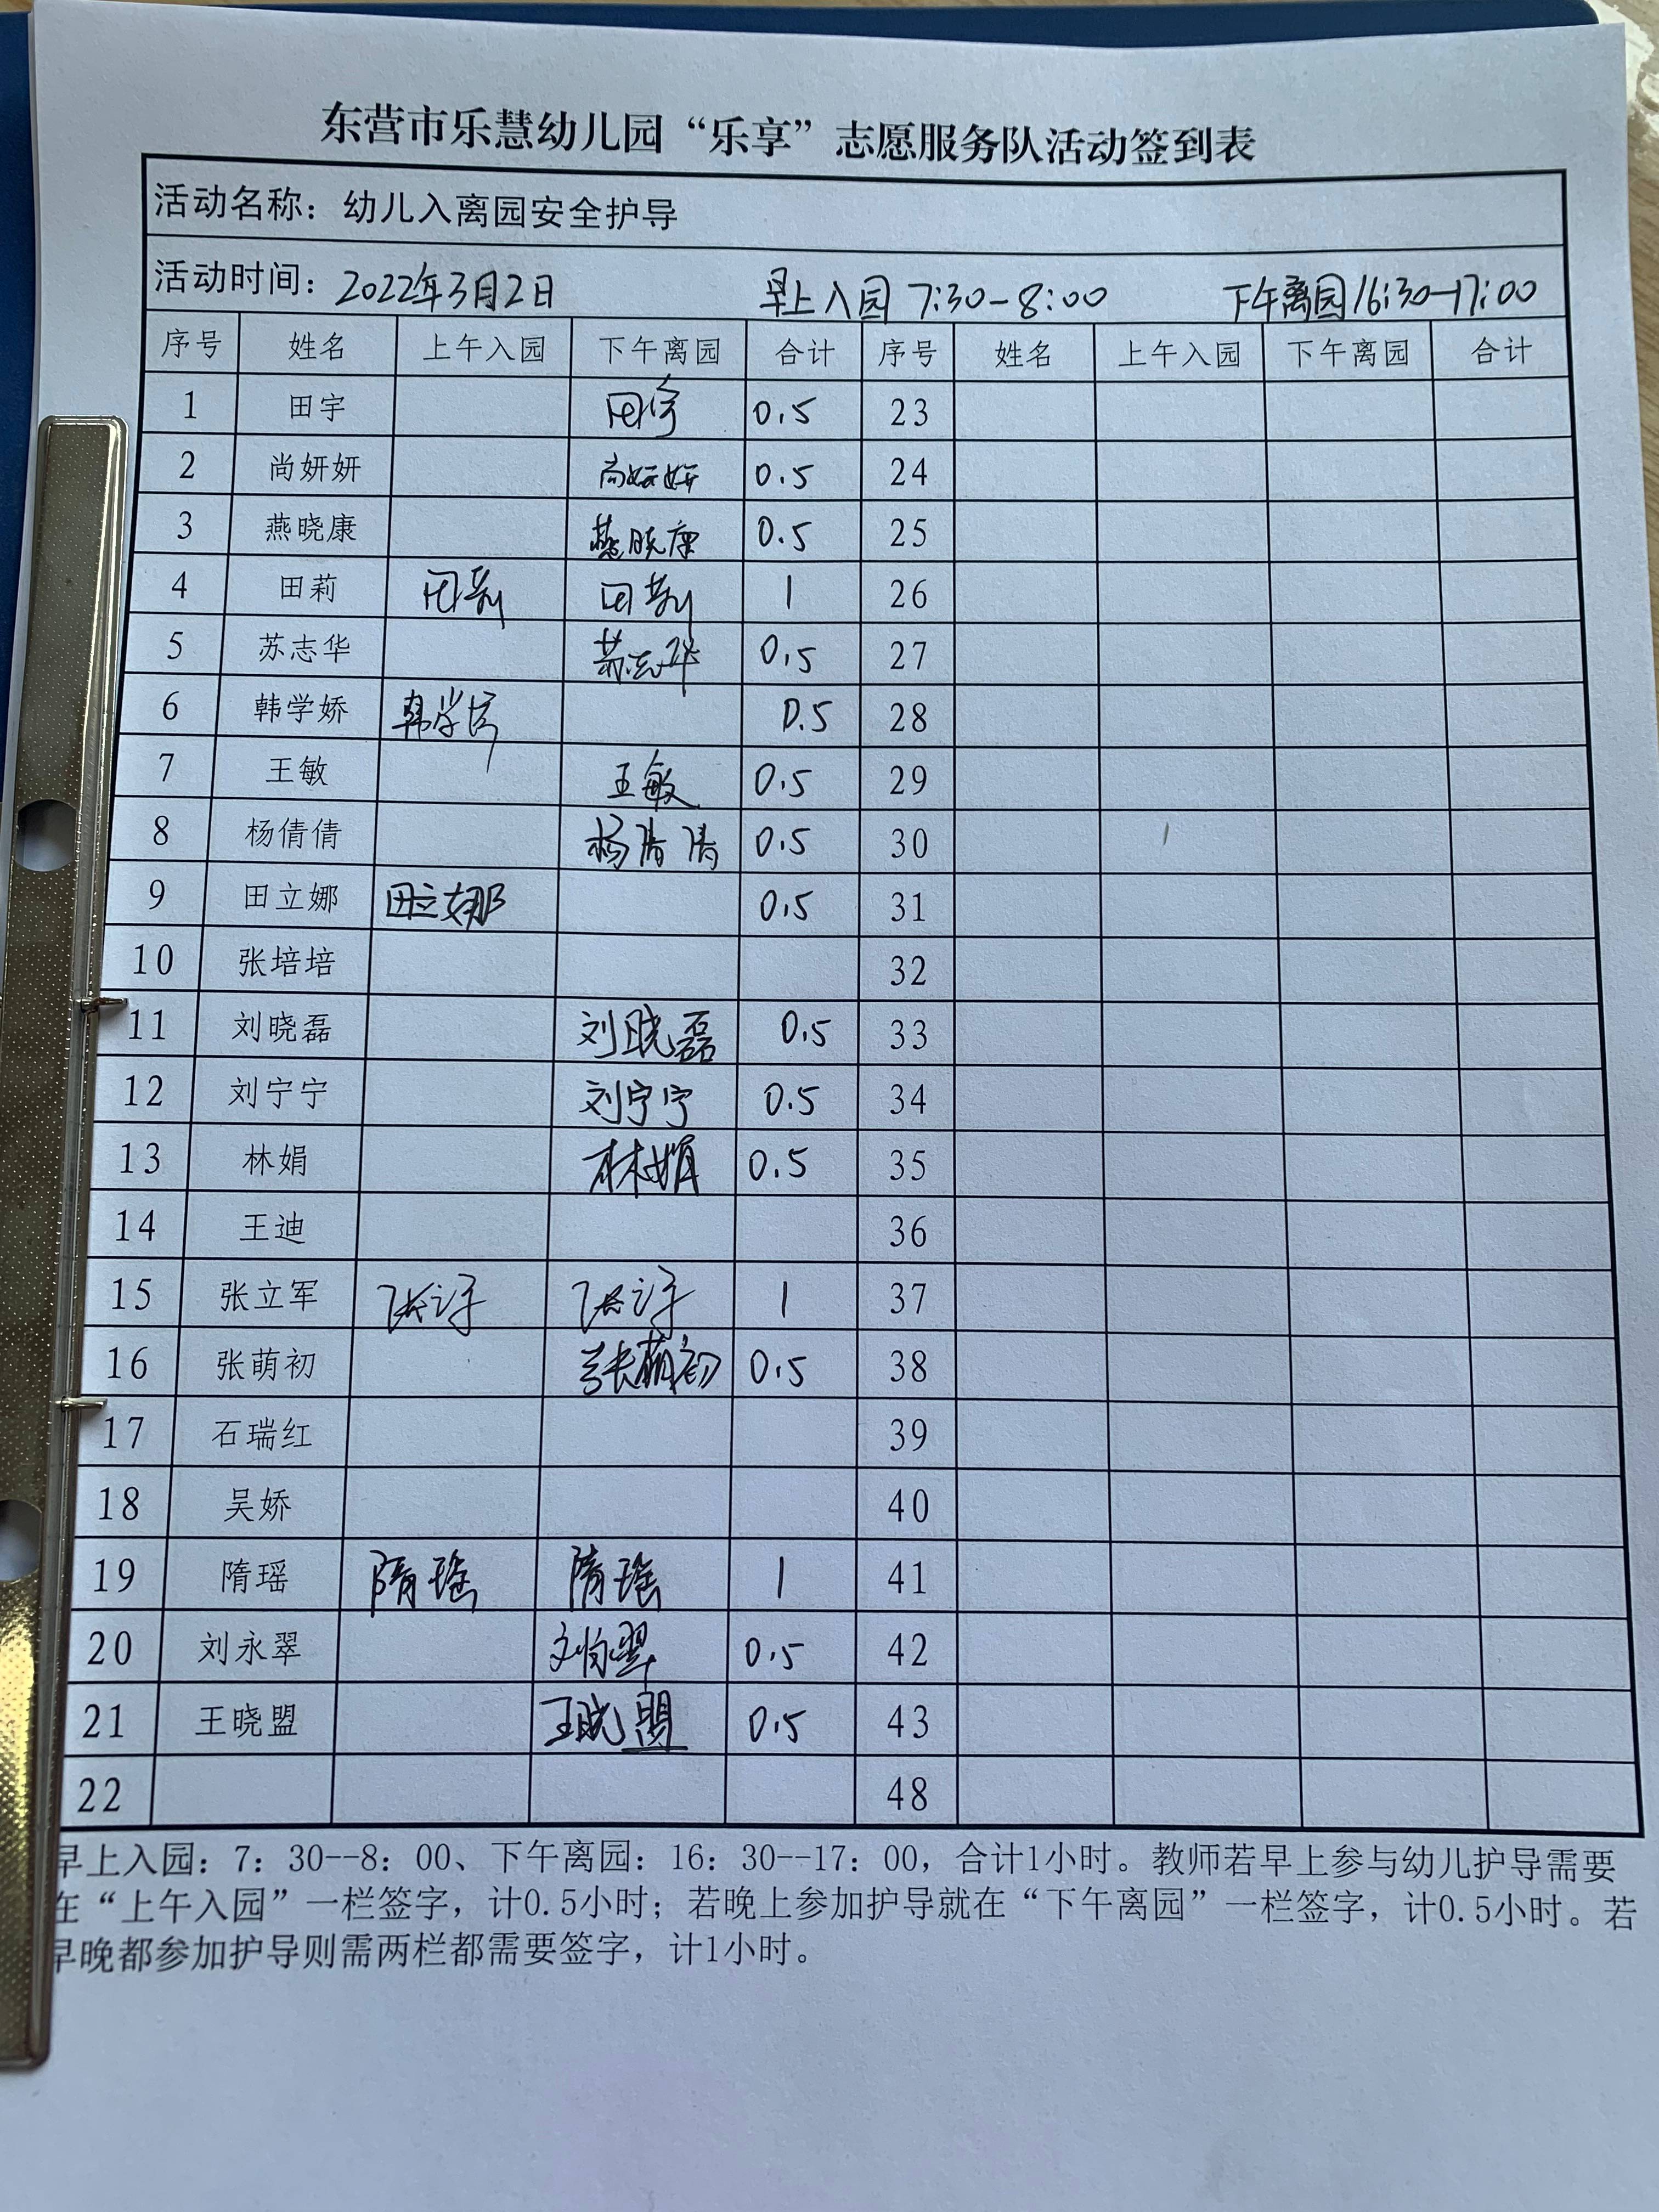 东营市乐慧幼儿园“乐享”志愿服务队活动签到表
活动名称：幼儿入离园安全护导
活动时间：2022年3月2日 早上入园 7:30-8:00 下午离园16:30-17:00
序号 姓名 上午入园 下午离园 合计 序号 姓名 上午入园 下午离园 合计
1 田宇 田宇 0.5 23
2 尚妍妍 尚妍妍 0.5 24
3 燕晓康 燕晓康 0.5 25
4 田莉 田莉 田莉 1 26
5 苏志华 苏志华 0.5 27
6 韩学娇 韩学娇 0.5 28
7 王敏 王敏 0.5 29
8 杨倩倩 杨倩倩 0.5 30
9 田立娜 田立娜 0.5 31
10 张培培 32
11 刘晓磊 刘晓磊 0.5 33
12 刘宁宁 刘宁宁 0.5 34
13 林娟 林娟 0.5 35
14 王迪 36
15 张立军 张立军 张立军 1 37
16 张萌初 张萌初 0.5 38
17 石瑞红 39
18 吴娇 40
19 隋瑶 隋瑶 隋瑶 1 41
20 刘永翠 刘永翠 0.5 42
21 王晓盟 王晓盟 0.5 43
22 48
早上入园：7：30--8：00、下午离园：16：30--17：00，合计1小时。教师若早上参与幼儿护导需要
在“上午入园”一栏签字，计0.5小时；若晚上参加护导就在“下午离园”一栏签字，计0.5小时。若
早晚都参加护导则需两栏都需要签字，计1小时。